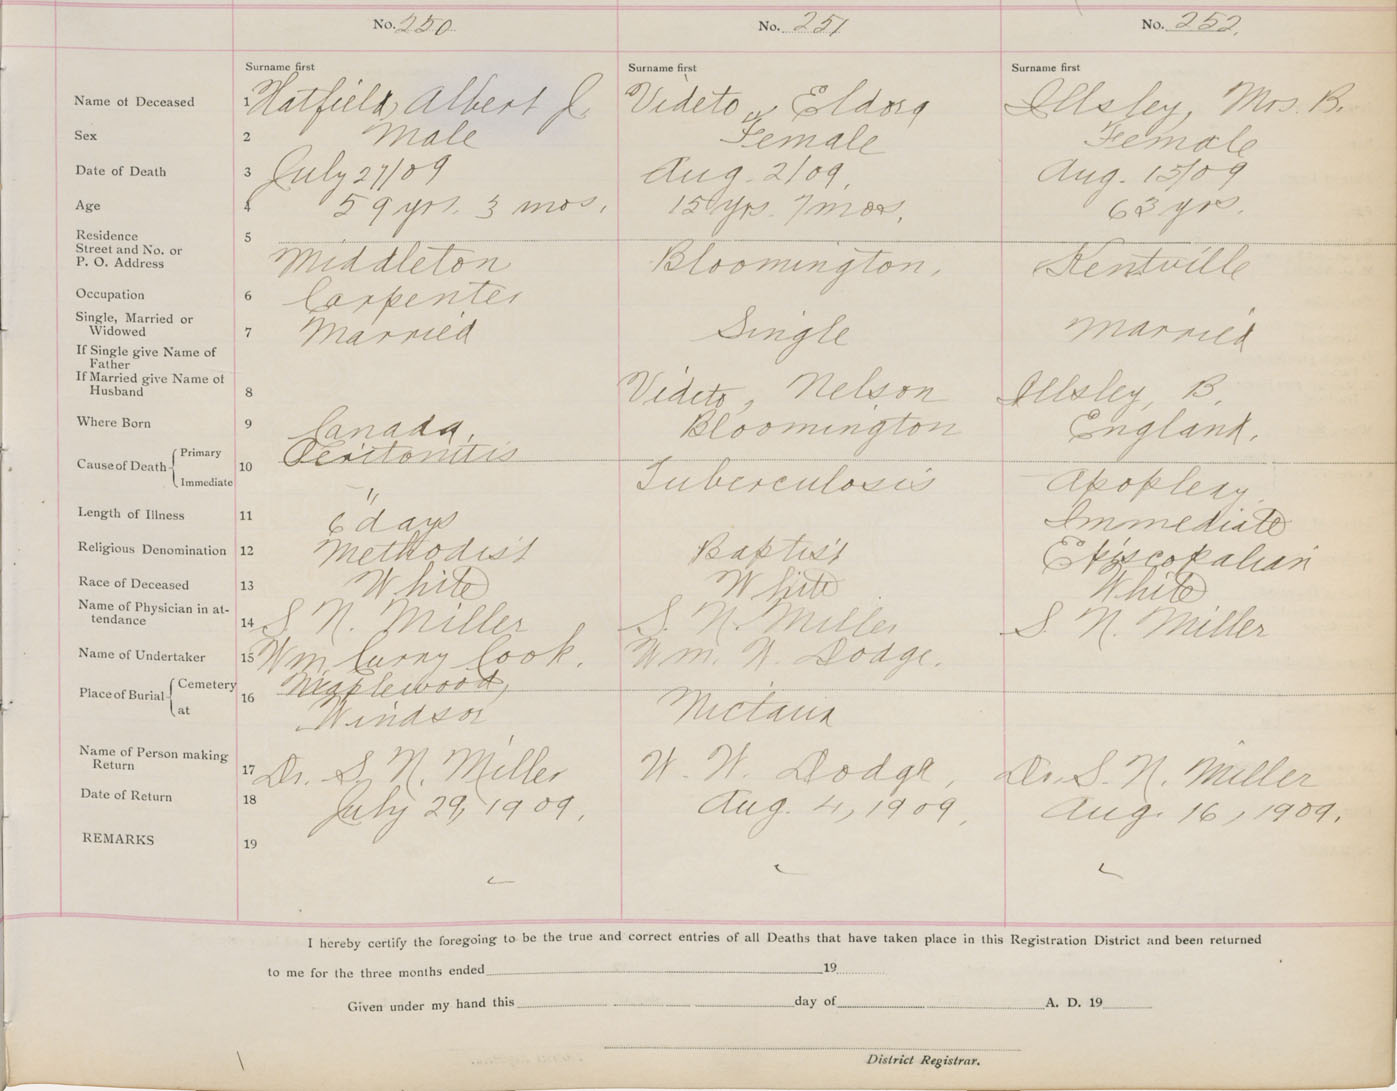 No. 250. No. 251 No. 252.
Surname first Surname first Surname first
Name of Deceased 1 Hatfield, Albert J. Videto, Eldora Illsley, Mrs. B.
Sex 2 Male Female Female
Date of Death 3 July 27/09 Aug. 2/09. Aug. 15/09
Age 4 59 yrs. 3 mos. 15 yrs. 7 mos. 63 yrs.
Residence 5
Street and No. or
P. O. Address Middleton Bloomington. Kentville
Occupation 6 Carpenter
Single, Married or
Widowed 7 Married Single Married
If Single give Name of
Father
If Married give Name of
Husband 8 Videto, Nelson Illsley, B.
Where Born 9 Canada, Bloomington England.
Cause of Death Primary 10 Peritonitis Tuberculosis Apoplexy
Immediate "
Length of Illness 11 6 days Immediate
Religious Denomination 12 Methodist Baptist Episcopalian
Race of Deceased 13 White White White
Name of Physician in at-
tendance 14 S. N. Miller S. N. Miller S. N. Miller
Name of Undertaker 15 Wm Curry Cook. Wm. W. Dodge.
Place of Burial Cemetery 16 Maplewood,
at Windsor Nictaux
Name of Person making
Return 17 Dr. S. N. Miller W. W. Dodge, Dr. S. N. Miller
Date of Return 18 July 29, 1909. Aug. 4, 1909. Aug. 16, 1909.
REMARKS 19
I hereby certify the foregoing to be the true and correct entries of all Deaths that have taken place in this Registration District and been returned
to me for the three months ended 19
Given under my hand this day of A. D. 19
District Registrar.